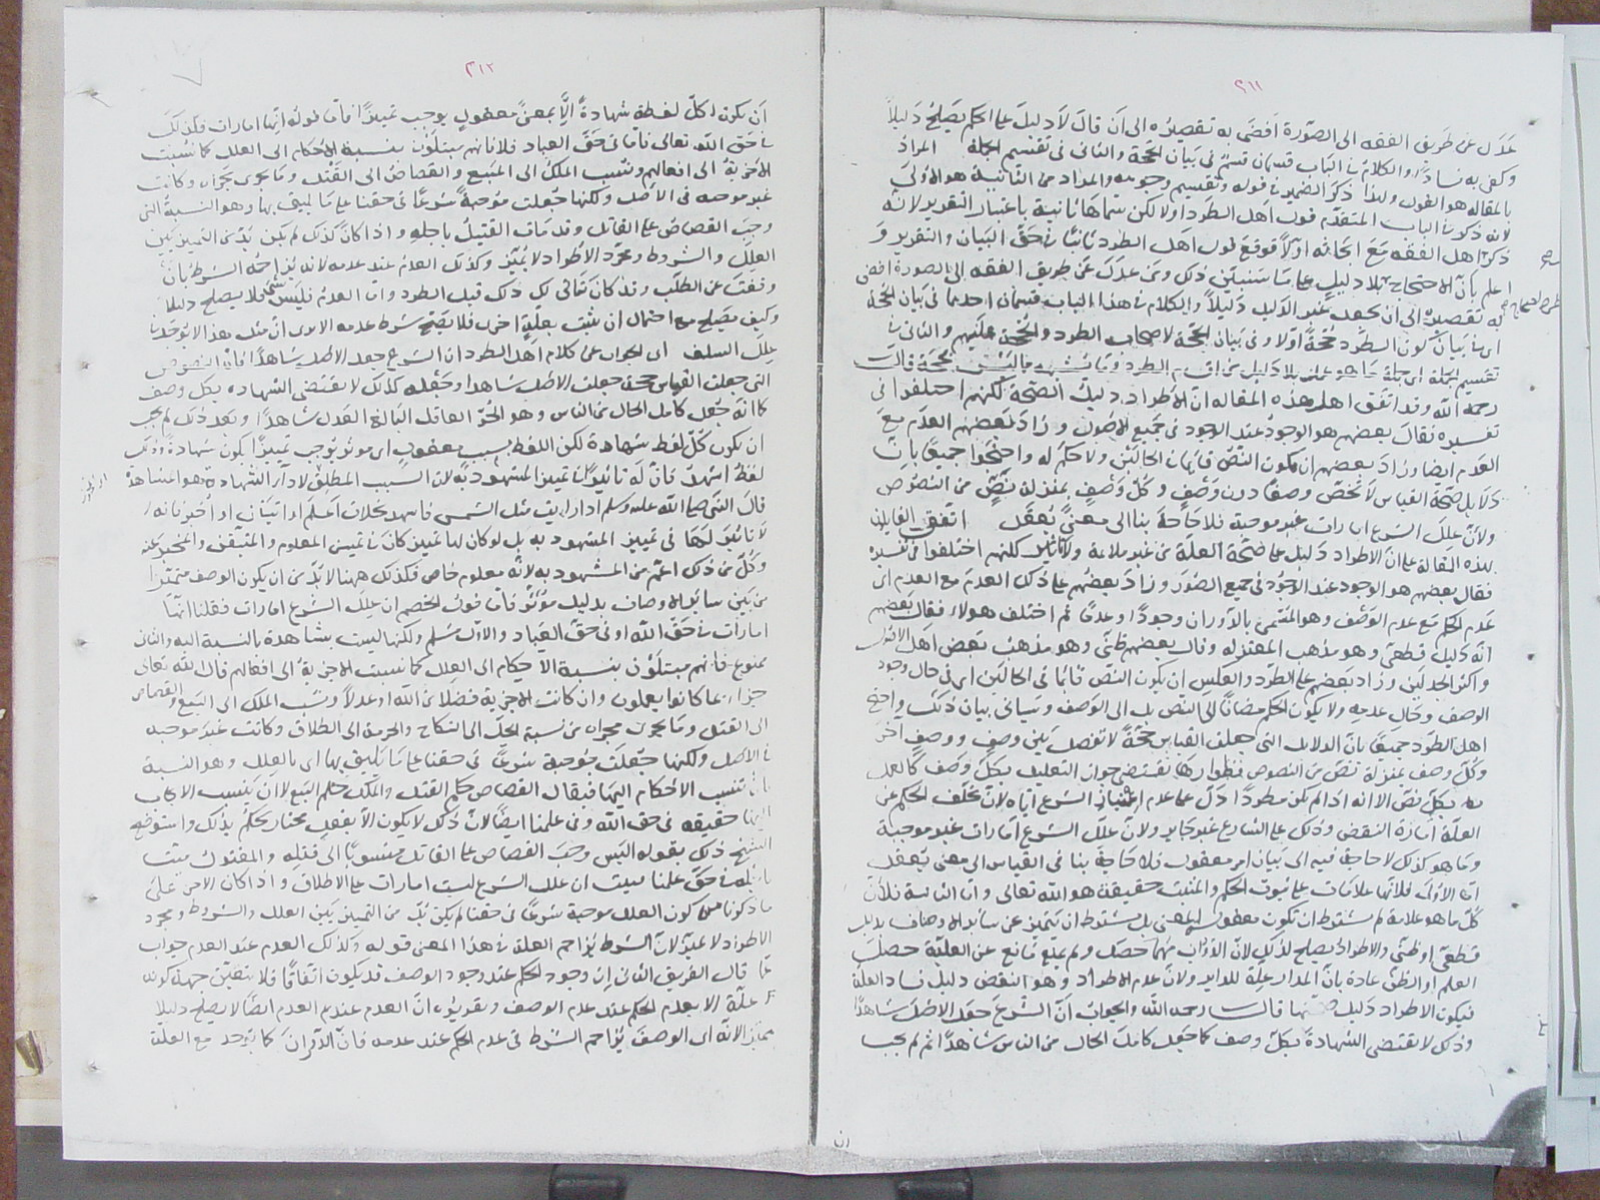 ٢١١
عدل عن طريق الفقه الى الصورة افضى به تقصيره الى ان قال لا دليل على الحكم يصلح دليلاً
وكفى به فسادا والكلام في الباب قسمان قسم في بيان الحجة والثاني في تقسيم الجملة المراد
بالمقالة هو القول ولهذا ذكر الضمير في قوله وتقسيم وجوهه والمراد من الثانية هو الاولى
لانه ذكر في الباب المتقدم قول اهل الطرد اولا لكن سماها ثانية باعتبار التقرير لانه
ذكر اهل الفقه مع الحاثه اولاً فوقع قول اهل الطرد ثانيا في حق البيان والتقرير و
اعلم بأن الاحتجاج بلا دليل على ما سنبين ذلك ومن عدل عن طريق الفقه الى الصورة افضى
له تقصيره الى ان يجعل غير الدليل دليلاً والكلام في هذا الباب قسمان احدهما في بيان الحجة
اي في بيان كون الطرد حجة اولا وفي بيان الحجة لاصحاب الطرد والحجة عليهم والثاني في
تقسيم الجملة اي جملة ما هو عمل بلا دليل من الطرد وما ليس بحجة قال
رحمه الله وقد اتفق اهل هذه المقالة ان الاطراد دليل الصحة لكنهم اختلفوا في
تفسيره فقال بعضهم هو الوجود عند الوجود في جميع الاصول وزاد بعضهم العدم مع
العدم ايضا وزاد بعضهم ان يكون النص قائما في الحالين ولا حكم له واحتجوا جميعا بان
دلائل صحة القياس لا تخص وصفا دون وصف وكل وصف بمنزلة نص من النصوص
ولان علل الشرع امارات غير موجبة فلا حاجة بنا الى معنى يعقل اتفق القائلون
بهذه المقالة على ان الاطراد دليل على صحة العلة من غير ملاءمة ولا تاثير لكنهم اختلفوا في تفسيره
فقال بعضهم هو الوجود عند الوجود في جميع الصور وزاد بعضهم على ذلك العدم مع العدم اي
عدم الحكم مع عدم الوصف وهو المسمى بالدوران وجودا وعدما ثم اختلف هؤلاء فقال بعضهم
انه دليل قطعي وهو مذهب المعتزلة وقال بعضهم ظني وهو مذهب بعض اهل الاصول
واكثر الجدليين وزاد بعضهم على الطرد والعكس ان يكون النص قائما في الحالين اي في حال وجود
الوصف وحال عدمه ولا يكون الحكم مضافا الى النص بل الى الوصف وسياتي بيان ذلك واحتج
اهل الطرد جميعا بان الدلائل التي جعلت القياس حجة لا تفصل بين وصف ووصف آخر
وكل وصف بمنزلة نص من النصوص فظواهرها تقتضي جواز التعليل بكل وصف كالعمل
بكل نص الا انه اذا لم يكن مطردا دل على عدم اعتبار الشرع اياه لان تخلف الحكم عن
العلة امارة النقض وذلك على الشارع غير جايز ولان علل الشرع امارات غير موجبة
وما هو كذلك لا حاجة فيه الى بيان امر معقول فلا حاجة بنا في القياس الى معنى يعقل
اما الاولى فلانها علامات على ثبوت الحكم والمثبت حقيقة هو الله تعالى واما الثانية فلان
كل ما هو علامة لم يشترط ان يكون معقول المعنى بل يشترط ان يتميز عن سائر الاوصاف بدليل
قطعي او ظني والاطراد يصلح لذلك لان الدوران مهما حصل ولم يقع مانع عن العلية حصل
العلم او الظن عادة بان المدار علة للداير ولان عدم الاطراد وهو النقض دليل فساد العلة
فيكون الاطراد دليل صحتها قال رحمه الله والجواب ان الشرع جعل الاصل شاهدا
وذلك لا يقتضي الشهادة بكل وصف كما جعل كامل الحال من الناس شاهدا ثم لم يجب
٢١٢
ان يكون كل لفظة شهادة الا بمعنى معقول يوجب تمييزا فاما قوله انها امارات فكذلك
في حق الله تعالى فاما في حق العباد فلا فانهم مبتلون بنسبة الاحكام الى العلل كما نسبت
الاجزية الى افعالهم ونسب الملك الى البيع والقصاص الى القتل وما يجري مجراه وكانت
غير موجبة في الاصل ولكنها جعلت موجبة شرعا في حقنا على ما يليق بها وهو النسبة التي
وجب القصاص على القاتل وقد مات القتيل باجله واذا كان كذلك لم يكن بد من التمييز بين
العلل والشروط ومجرد الاطراد لا يميز وكذلك العدم عند عدمه لانه يزاحمه الشرط بان
وقعت عن الطلب وقد كان تمامى لك ذلك قبل الطرد واما العدم فليس بشيء فلا يصلح دليلا
وكيف يصلح مع احتمال ان يثبت بعلة اخرى فلا يصح شرط عدمه الا ترى ان مثل هذا لا يوجد في
علل السلف اي الجواب عن كلام اهل الطرد ان الشرع جعل الاصل شاهدا فان النصوص
التي جعلت القياس حجة جعلت الاصل شاهدا وجعله كذلك لا يقتضي الشهادة بكل وصف
كما انه جعل كامل الحال من الناس وهو الحر العاقل البالغ العدل شاهدا وبعد ذلك لم يجب
ان يكون كل لفظ شهادة لكن اللفظ بسبب معقول اي موثر يوجب تمييزا يكون شهادة وذلك
لفظ اشهد فان له تاثيرا في تمييز المشهود به لان السبب المطلق لاداء الشهادة هو المشاهدة
قال النبي صلى الله عليه وسلم اذا رايت مثل الشمس فاشهد بخلاف اعلم او اتيقن او اخبر فانه
لا تاثير لها في تمييز المشهود به بل لو كان لها تمييز كان في تمييز المعلوم والمتيقن والمخبر عنه
وكل من ذلك اعم من المشهود به لانه معلوم خاص فكذلك ههنا لا بد من ان يكون الوصف متميزا
من بين ساير الاوصاف بدليل مؤثر فاما قول الخصم ان علل الشرع امارات فقلنا انها
امارات في حق الله او في حق العباد والاول مسلم ولكنها ليست بشاهدة بالنسبة اليه والثاني
ممنوع فانهم مبتلون بنسبة الاحكام الى العلل كما نسبت الاجزية الى افعالهم قال الله تعالى
جزاء بما كانوا يعملون وان كانت الاجزية فضلا من الله او عدلا ونسب الملك الى البيع والقصاص
الى القتل وما يجري مجراه من نسبة الحل الى النكاح والحرمة الى الطلاق وكانت غير موجبة
في الاصل ولكنها جعلت موجبة شرعا في حقنا على ما يليق بها اي بالعلل وهو النسبة
بان تنسب الاحكام اليها فيقال القصاص حكم القتل والملك حكم البيع لا ان ينسب الايجاب
اليها حقيقة في حق الله وفي علمنا ايضا لان ذلك لا يكون الا بفعل مختار يحكم بذلك واستوضح
الشيخ ذلك بقوله اليس وجب القصاص على القاتل منسوبا الى قتله والمقتول ميت
باجله في حق علمنا فثبت ان علل الشرع ليست امارات على الاطلاق واذا كان الامر على
ما ذكرنا من كون العلل موجبة شرعا في حقنا لم يكن بد من التمييز بين العلل والشروط ومجرد
الاطراد لا يميز لان الشرط يزاحم العلة في هذا المعنى قوله وكذلك العدم عند العدم جواب
عما قال الفريق الثاني ان وجود الحكم عند وجود الوصف قد يكون اتفاقا فلا يتعين جهة كونه
علة الا بعدم الحكم عند عدم الوصف وتقريره ان العدم عند عدم العدم ايضا لا يصلح دليلا
لانه اي الوصف يزاحم الشرط في عدم الحكم عند عدمه فان الدوران كما يوجد مع العلة